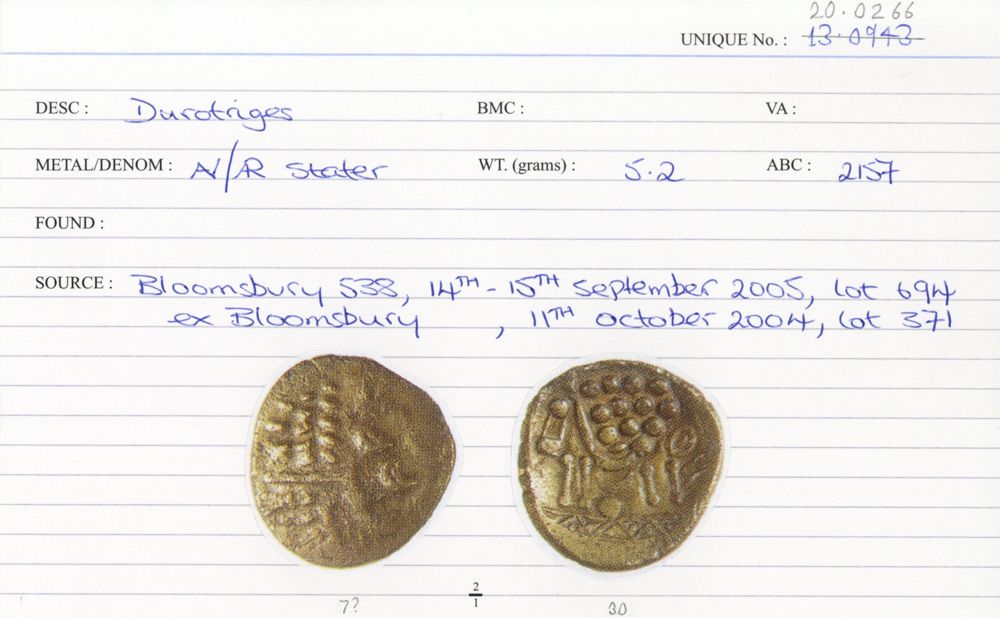 20.0266
UNIQUE No. : 13.0943
DESC : Durotriges BMC : VA :
METAL/DENOM : N/R Stater WT. (grams) : 5.2 ABC : 2157
FOUND :
SOURCE : Bloomsbury 538, 14TH - 15TH September 2005, lot 694
ex Bloomsbury , 11TH October 2004, lot 371
2
1
7? 30